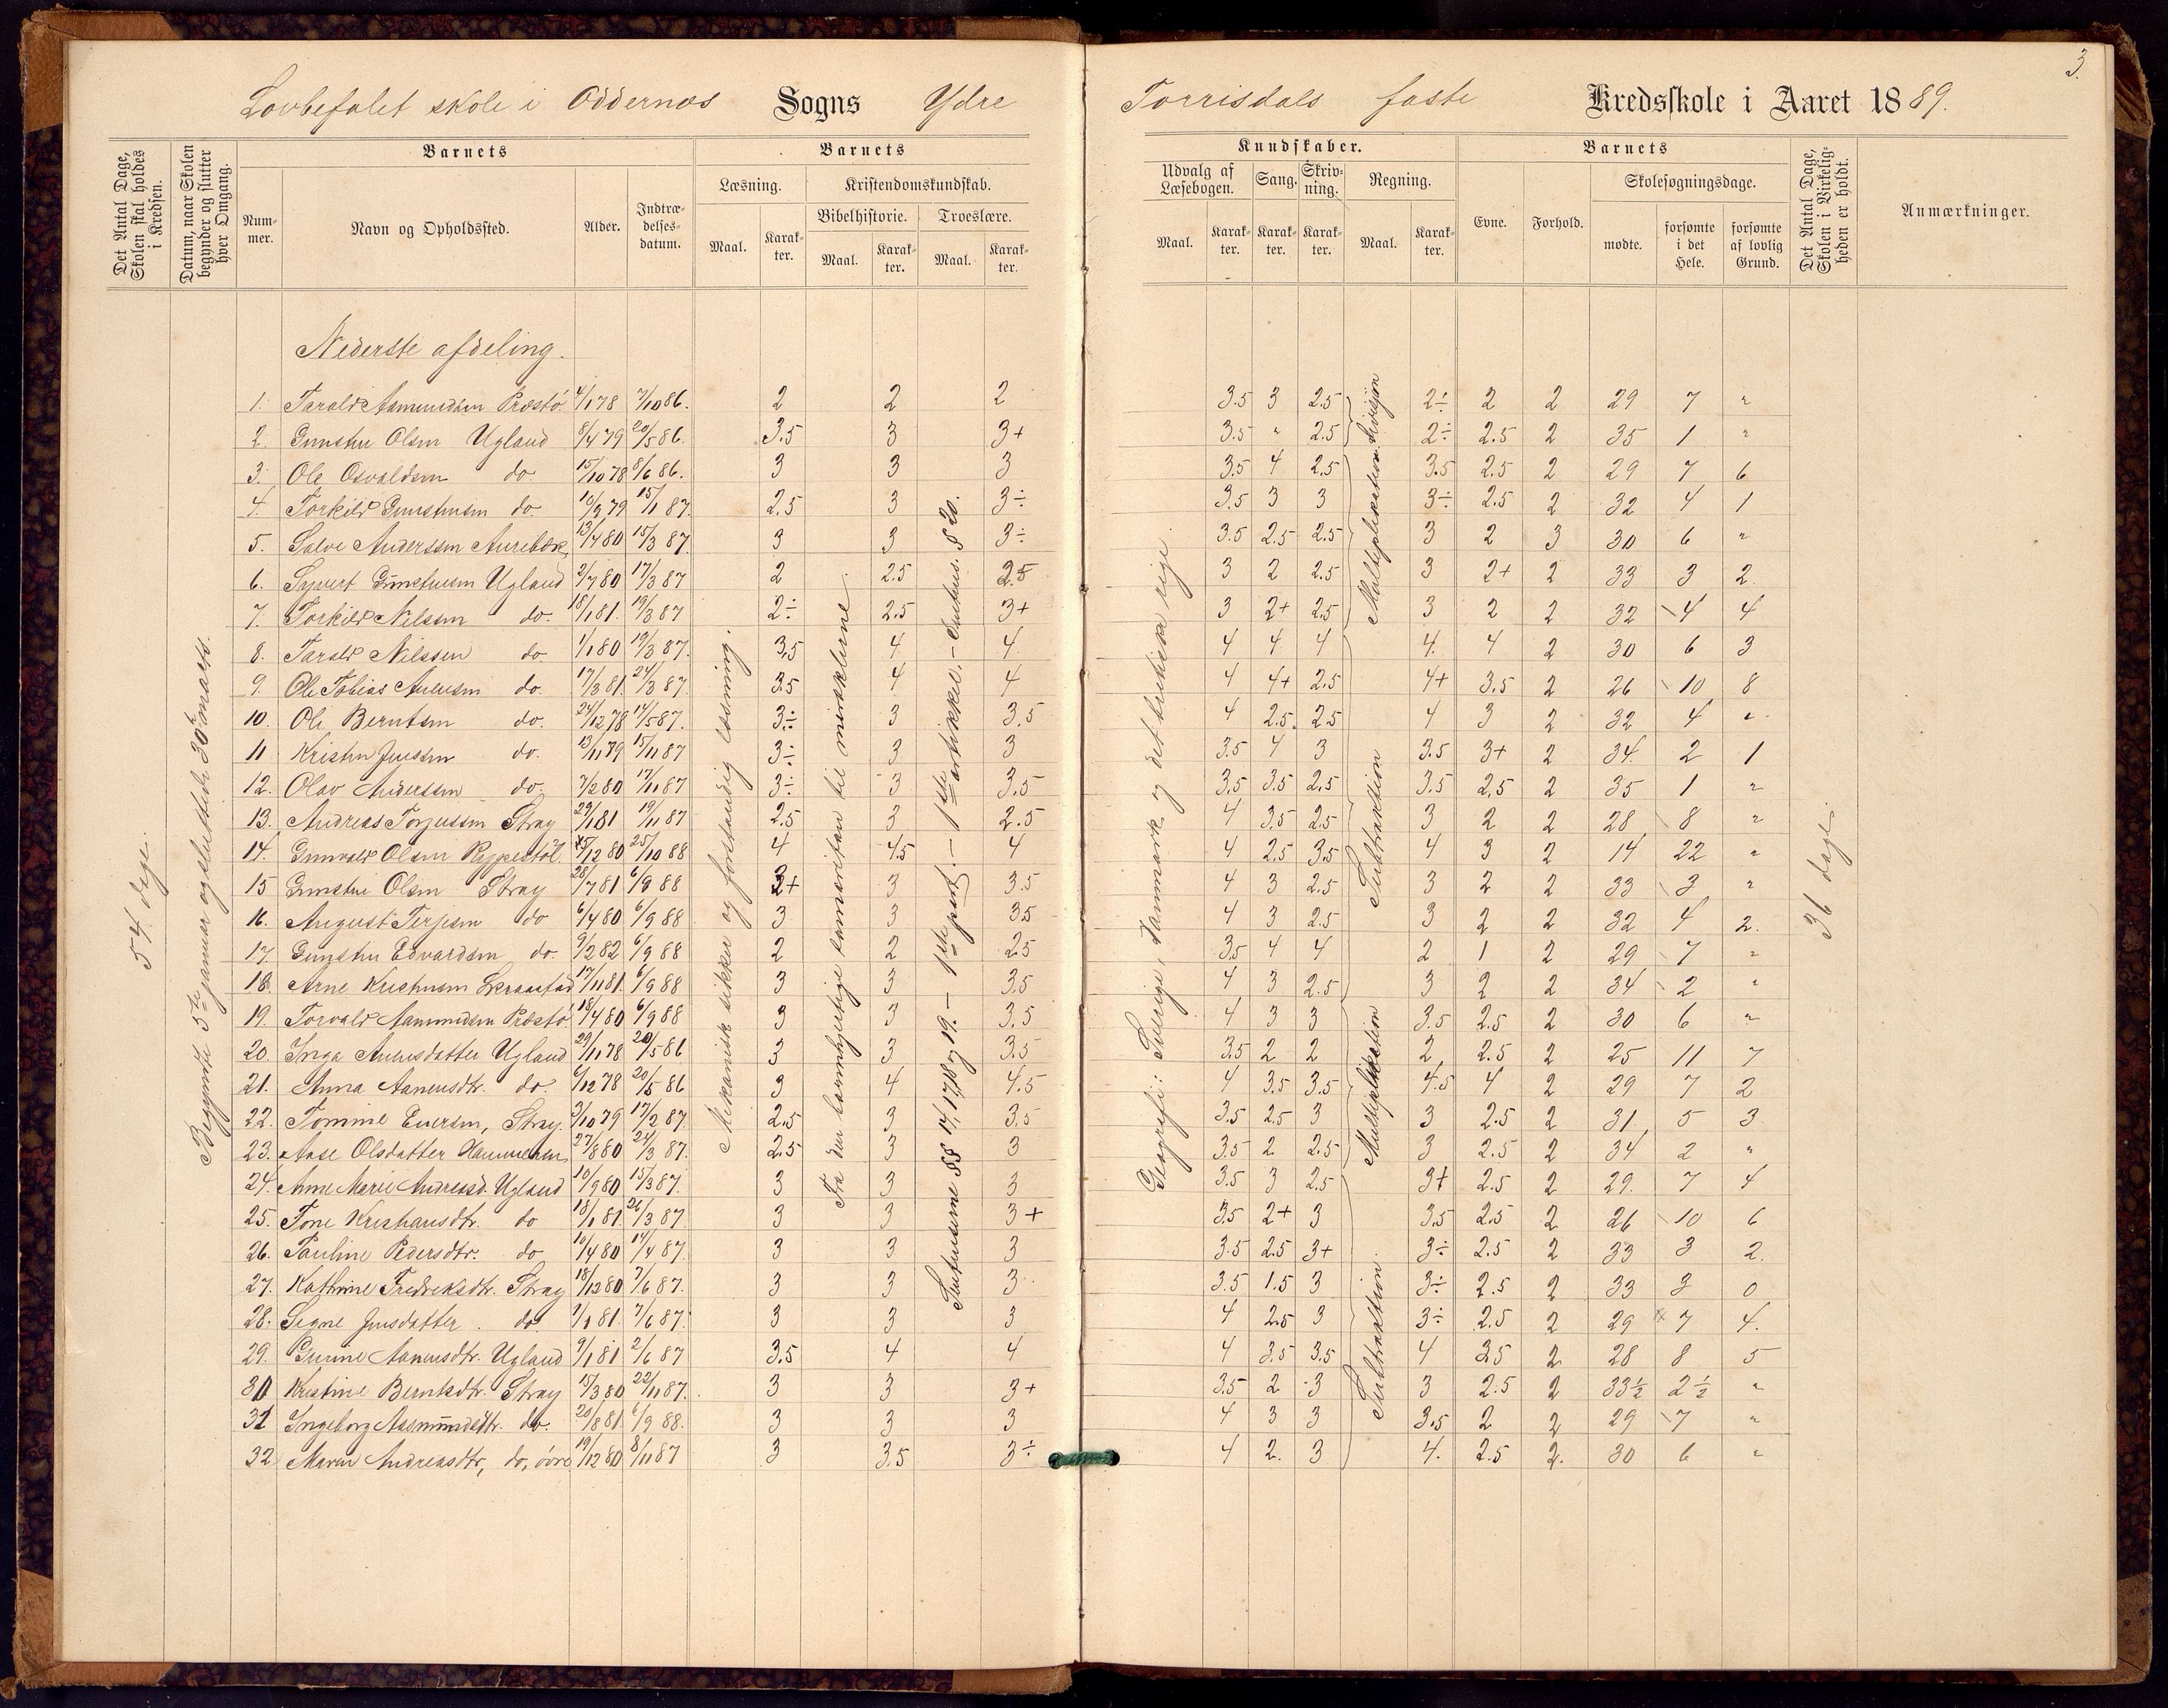 3.
Lovbefalet skole i Oddernes Sogns Ydre Torrisdals faste Kredsskole i Aaret 1889.
Det Antal Dage, Skolen skal holdes i Kredsen.
Datum, naar Skolen begynder og slutter hver Omgang.
Barnets
Nummer.
Navn og Opholdssted.
Alder.
Indtrædelsesdatum.
Barnets
Læsning.
Maal.
Karakter.
Kristendomskundskab.
Bibelhistorie.
Maal.
Karakter.
Troeslære.
Maal.
Karakter.
Kundskaber.
Udvalg af Læsebogen.
Maal.
Karakter.
Sang.
Karakter.
Skrivning.
Karakter.
Regning.
Maal.
Karakter.
Barnets
Evne.
Forhold.
Skolesøgningsdage.
mødte.
forsømte i det Hele.
forsømte af lovlig Grund.
Det Antal Dage, Skolen i Virkeligheden er holdt.
Anmærkninger.
54 dage.
Begyndte 5te januar og sluttede 30te marts.
Mekanisk sikker og forstandig læsning.
Fra den barmhjertige samaritan til miraklerne
1ste part. — 1ste artikkel
Geografi: Sverige, Danmark og det britiske rige.
Multiplikation. Division
Subtraktion
Multiplikation
Subtraktion.
36 dage.
Nederste afdeling.
1. Tarald Aamundsen Præstø 4/1 78 7/10 86. 2 2 2 3.5 3 2.5 2÷ 2 2 29 7 "
2. Gunstein Olsen Ugland 8/4 79 20/5 86. 3.5 3 3+ 3.5 " 2.5 2÷ 2.5 2 35 1 "
3. Ole Osvaldsen do 15/10 78 8/6 86. 3 3 3 3.5 4 2.5 3.5 2.5 2 29 7 6
4. Torkild Gunsteinsen do. 10/9 79 15/1 87. 2.5 3 3÷ 3.5 3 3 3÷ 2.5 2 32 4 1
5. Salve Anderssen Aurebæk 13/4 80 15/3 87. 3 3 3÷ 3.5 2.5 2.5 3 2 3 30 6 "
6. Syvert Gunsteinsen Ugland 2/7 80 17/3 87 2 2.5 2.5 3 2 2.5 3 2+ 2 33 3 2.
7. Torkild Nilssen do. 18/1 81. 19/3 87 2÷ 2.5 3+ 3 2+ 2.5 3 2 2 32 4 4
8. Tarald Nilssen do. 1/1 80 19/3 87. 3.5 4 4. 4 4 4 4. 4 2 30 6 3
9. Ole Tobias Aanensen do. 17/3 81. 24/3 87. 3.5 4 4 4 4+ 2.5 4+ 3.5 2 26 10 8
10. Ole Berntsen do. 24/12 78 14/5 87. 3÷ 3 3.5 4 2.5 2.5 4 3 2 32 4 "
11 Kristen Jenssen do. 13/11 79 15/11 87 3÷ 3 3 3.5 4 3 3.5 3+ 2 34. 2 1
12. Olav Anderssen do. 7/2 80 17/11 87 3÷ 3 3.5 3.5 3.5 2.5 3.5 2.5 2 35 1 "
13. Andreas Torjussen Stray 29/1 81 19/11 87 2.5 3 2.5 4 3.5 2.5 3 2 2 28 8 "
14. Gunvald Olsen Rypestøl 15/12 80 25/10 88 4 4.5 4 4 2.5 3.5 4 3 2 14 22 "
15 Gunstein Olsen Stray 28/7 81 6/9 88 3+ 3 3.5 4 3 2.5 3 2 2 33 3 "
16. August Terjesen do 6/4 80 6/9 88 3 3 3.5 4 3 2.5 3 2 2 32 4 2.
17. Gunstein Edvardsen do. 9/2 82 6/9 88 2 2 2.5 3.5 4 4 2 1 2 29 7 "
18. Arne Kristensen 17/11 81. 6/9 88 3 3 3.5 4 3 2.5 3 2 2 34 2 "
19. Torvald Aamundsen Præstø 18/4 80 6/9 88 3 3 3.5 4 3 3 3.5 2.5 2 30 6 "
20. Inga Aanensdatter Ugland 29/11 78 20/5 86 3 3 3.5 3.5 2 2 2 2.5 2 25 11 7
21. Anna Aanensdtr. do. 6/12 78 20/5 86 3 4 4.5 4 3.5 3.5 4.5 4 2 29 7 2
22. Tomine Eversen, Stray. 3/10 79 17/2 87. 2.5 3 3.5 3.5 2.5 3 3 2.5 2 31 5 3
23. Aase Olsdatter 27/8 80 24/3 87. 2.5 3 3 3.5 2 2.5 3 2.5 2 34 2 "
24. Anne Marie Andreasd. Ugland 10/9 80 15/3 87. 3 3 3 3.5 3 2.5 3+ 2.5 2 29. 7 4
25. Tone Kristiansdtr. do 18/1 81. 26/3 87. 3 3 3+ 3.5 2+ 3 3.5 2.5 2 26 10 6
26. Pauline Pedersdtr. do 10/4 80 14/4 87. 3 3 3 3.5 2.5 3+ 3÷ 2.5 2 33 3 2.
27. Kathrine Fredreksdtr. Stray 18/12 80 7/6 87. 3 3 3. 3.5 1.5 3 3÷ 2.5 2 33 3 0
28. Signe Jensdatter. do. 1/1 81. 7/6 87. 3 3 3 4 2.5 3 3÷ 2.5 2 29 7 4.
29. Gurine Aanensdtr. Ugland 9/1 81 2/6 87 3.5 4 4 4 3.5 3.5 4 3.5 2 28 8 5
30 Kristine Berntsdtr. Stray 15/3 80 22/11 87. 3 3 3+ 3.5 2 3 3 2.5 2 33½ 2½ "
31 Ingeborg Aasmundsdtr. do. 20/8 81. 6/9 88. 3 3 3 4 3 3 3.5 2 2 29 7 "
32 Maren Andreasdtr, do, øvre 19/12 80 8/11 87 3 3.5 3÷ 4 2. 3 4. 2.5 2. 30 6 "